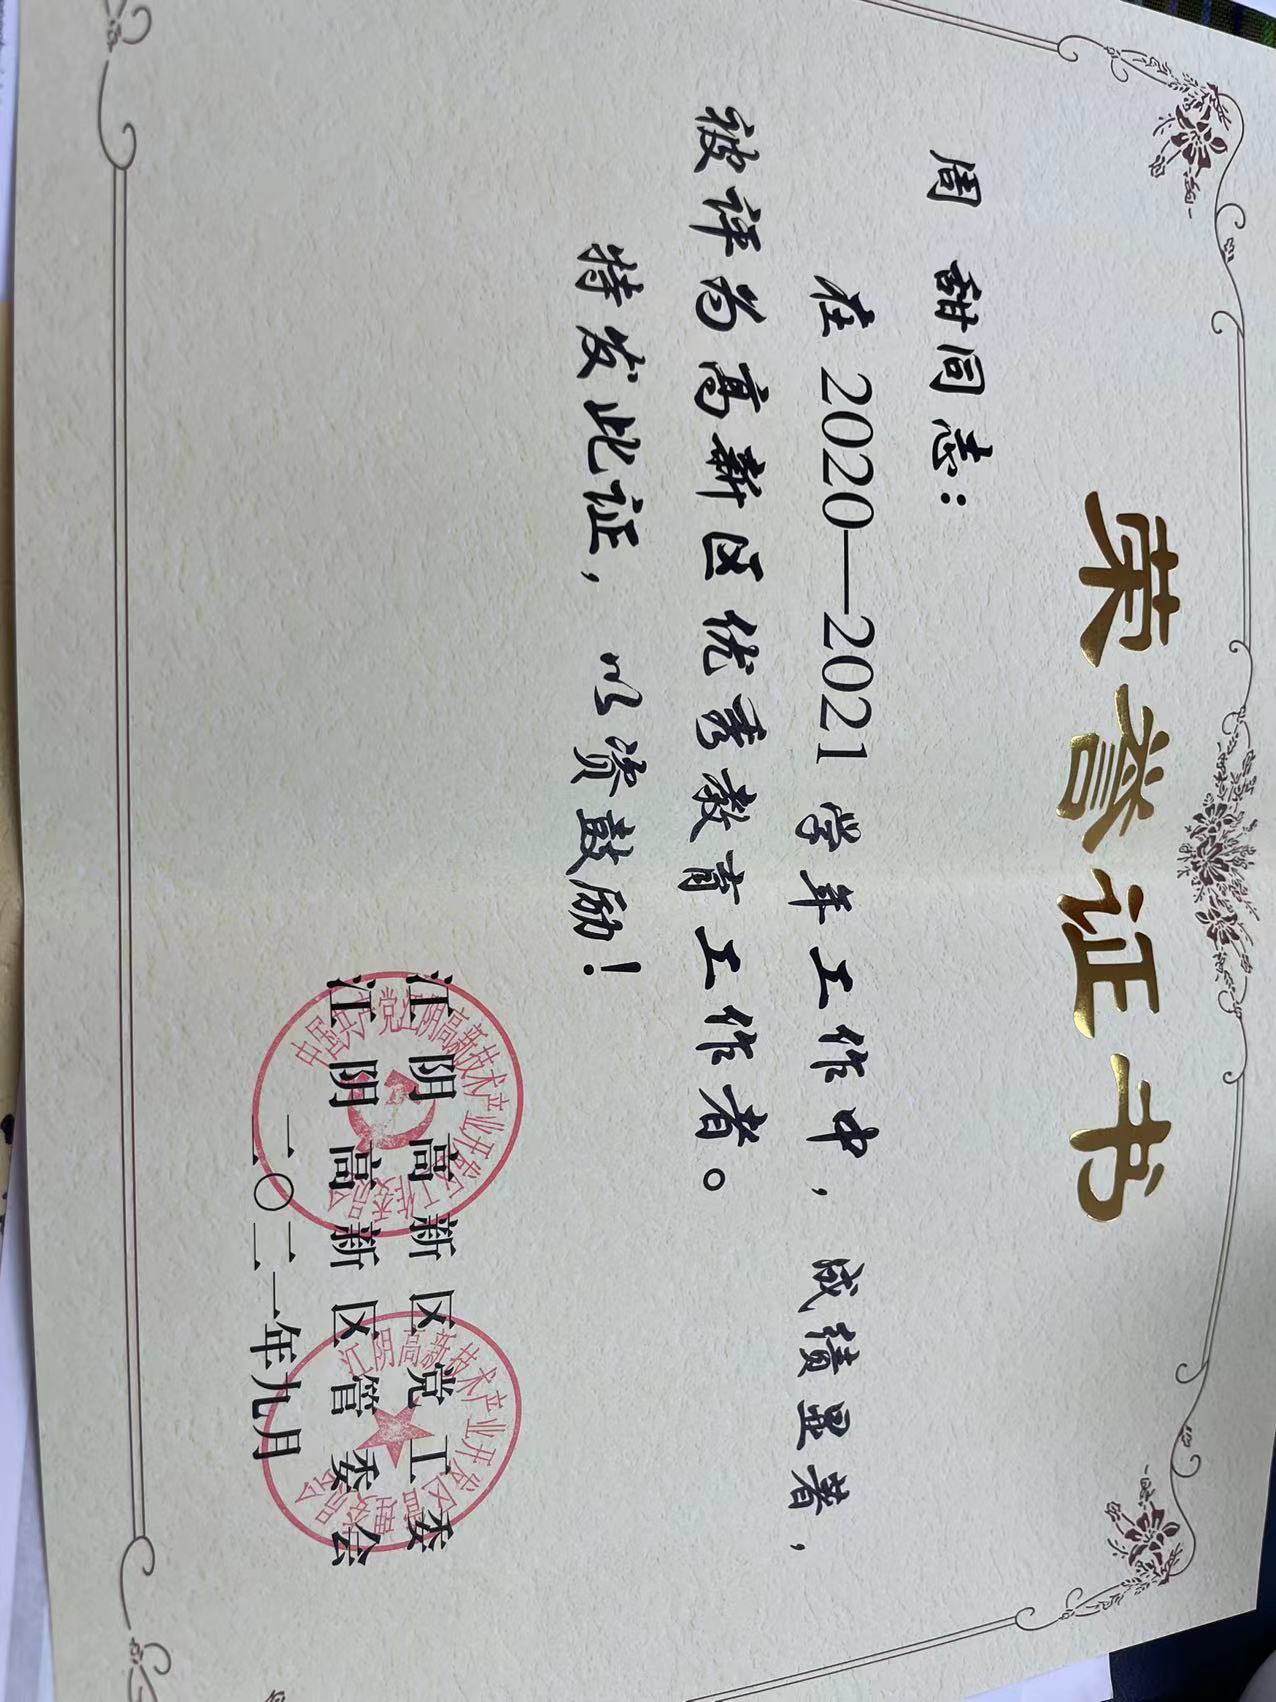 荣誉证书
周甜同志：
在2020—2021学年工作中，成绩显著，
被评为高新区优秀教育工作者。
特发此证，以资鼓励！
江阴高新区党工委
江阴高新区管委会
二〇二一年九月
中国共产党江阴高新技术产业开发区工作委员会
江阴高新技术产业开发区管理委员会